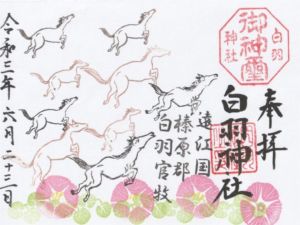 奉拝
白羽
御神璽
神社
白羽神社
遠江国
榛原郡
白羽官牧
令和三年六月二十二日